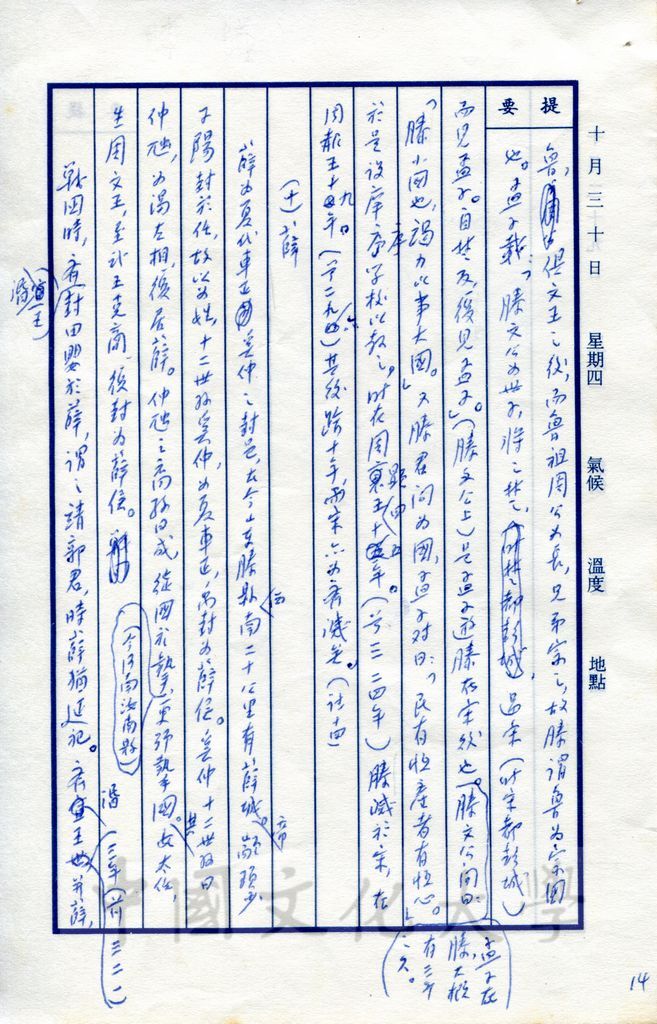 十月三十日 星期四 氣候 溫度 地點
提要
魯，俱文王之後，而魯祖周公為長，兄弟宗之，故滕謂魯為宗國
也。孟子載：「滕文公為世子，將之楚，過宋（時宋都彭城）
而見孟子。自楚反，復見孟子」。（滕文公上）是孟子遊滕在宋後也。滕文公問曰：
「滕小國也，竭力以事大國。」又滕君問為國，孟子對曰：「民有恒產者有恒心。」
於是設庠序學校以教之。時在周顯王四十五年。（前三二四年）滕滅於宋，在
周赧王十九年。（前二九六）其後踰十年，而宋亦為齊滅矣。（詳前）
孟子在滕大概有三年之久。
(十)薛
薛為夏代車正奚仲之封邑，在今山東滕縣南二十公里有薛城。帝顓頊少
子陽封於任，故以為姓，十二世孫奚仲，為夏車正，禹封為薛侯。奚仲十二世孫曰
仲虺，為湯左相，復居薛。仲虺之裔孫曰成，徙國於摯，更號摯國。女太任，
生周文王，至武王克商，復封為薛侯。（今河南汝南縣）
戰國時，齊封田嬰於薛，謂之靖郭君，時薛猶延祀。齊湣王三年（前三二一）并薛，
湣（宣王）
14
中國文化大學